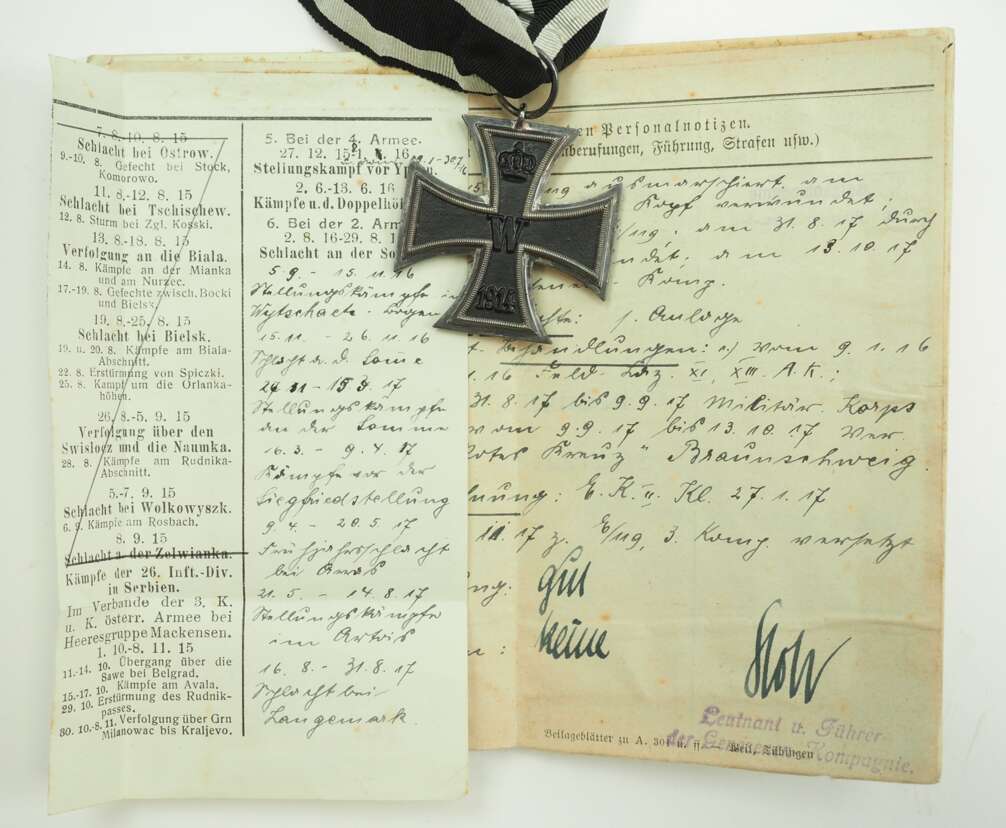 7. 8.-10. 8. 15
Schlacht bei Ostrow.
9.-10. 8. Gefecht bei Stock,
Komorowo.
11. 8.-12. 8. 15
Schlacht bei Tschischew.
12. 8. Sturm bei Zgl. Kosski.
13. 8.-18. 8. 15
Verfolgung an die Biala.
14. 8. Kämpfe an der Mianka
und am Nurzec.
17.-19. 8. Gefechte zwisch. Bocki
und Bielsk.
19. 8.-25. 8. 15
Schlacht bei Bielsk.
19. u. 20. 8. Kämpfe am Biala-
Abschnitt.
22. 8. Erstürmung von Spiczki.
25. 8. Kampf um die Orlanka-
höhen.
26. 8.-5. 9. 15
Verfolgung über den
Swislocz und die Naumka.
28. 8. Kämpfe am Rudnika-
Abschnitt.
5.-7. 9. 15
Schlacht bei Wolkowyszk.
6. 9. Kämpfe am Rosbach.
8. 9. 15
Schlacht a. der Zelwianka.
Kämpfe der 26. Inft.-Div.
in Serbien.
Im Verbande der 3. K.
u. K. österr. Armee bei
Heeresgruppe Mackensen.
1. 10.-8. 11. 15
11.-14. 10. Übergang über die
Sawe bei Belgrad.
15.-17. 10. Kämpfe am Avala.
29. 10. Erstürmung des Rudnik-
passes.
30. 10.-8. 11. Verfolgung über Grn
Milanowac bis Kraljevo.
5. Bei der 4. Armee.
27. 12. 15- 16
Stellungskampf vor
2. 6.-13. 6. 16
Kämpfe u. d.
6. Bei der 2.
2. 8. 16-29. 8.
Schlacht an der
5.9. - 15.11.16
Stellungskämpfe i
Wytschaete-bogen
15.11. - 26.11.16
Schlacht a. d. Somme
27 11 - 15 3. 17
Stellungskämpfe
an der Somme
16.3. - 9.4.17
Kämpfe vor der
Siegfriedstellung
9.4. - 20.5.17
Frühjahrsschlacht
bei Arras
21.5. - 14.8.17
Stellungskämpfe
im Artois
16.8. - 31.8.17
Schlacht bei
Langemark.
W
1914
en Personalnotizen.
berufungen, Führung, Strafen usw.)
ausmarschiert am
Kopf verwundet;
am 31.8.17 durch
ndet; am 13.10.17
Komp.
1. Anlage
Behandlungen: vom 9.1.16
1.16 Feld Laz. XI, XIII. A.K.;
31.8.17 bis 9.9.17 Militär. Korps
vom 9.9.17 bis 13.10.17 Ver.
otes Kreuz" Braunschweig.
nung: E.K. II. Kl. 27.1.17
11.17 z. E/119, 3. Komp. versetzt
ng: gut
n: keine
Leutnant u. Führer
der Kompagnie.
Beilageblätter zu A. Tübingen